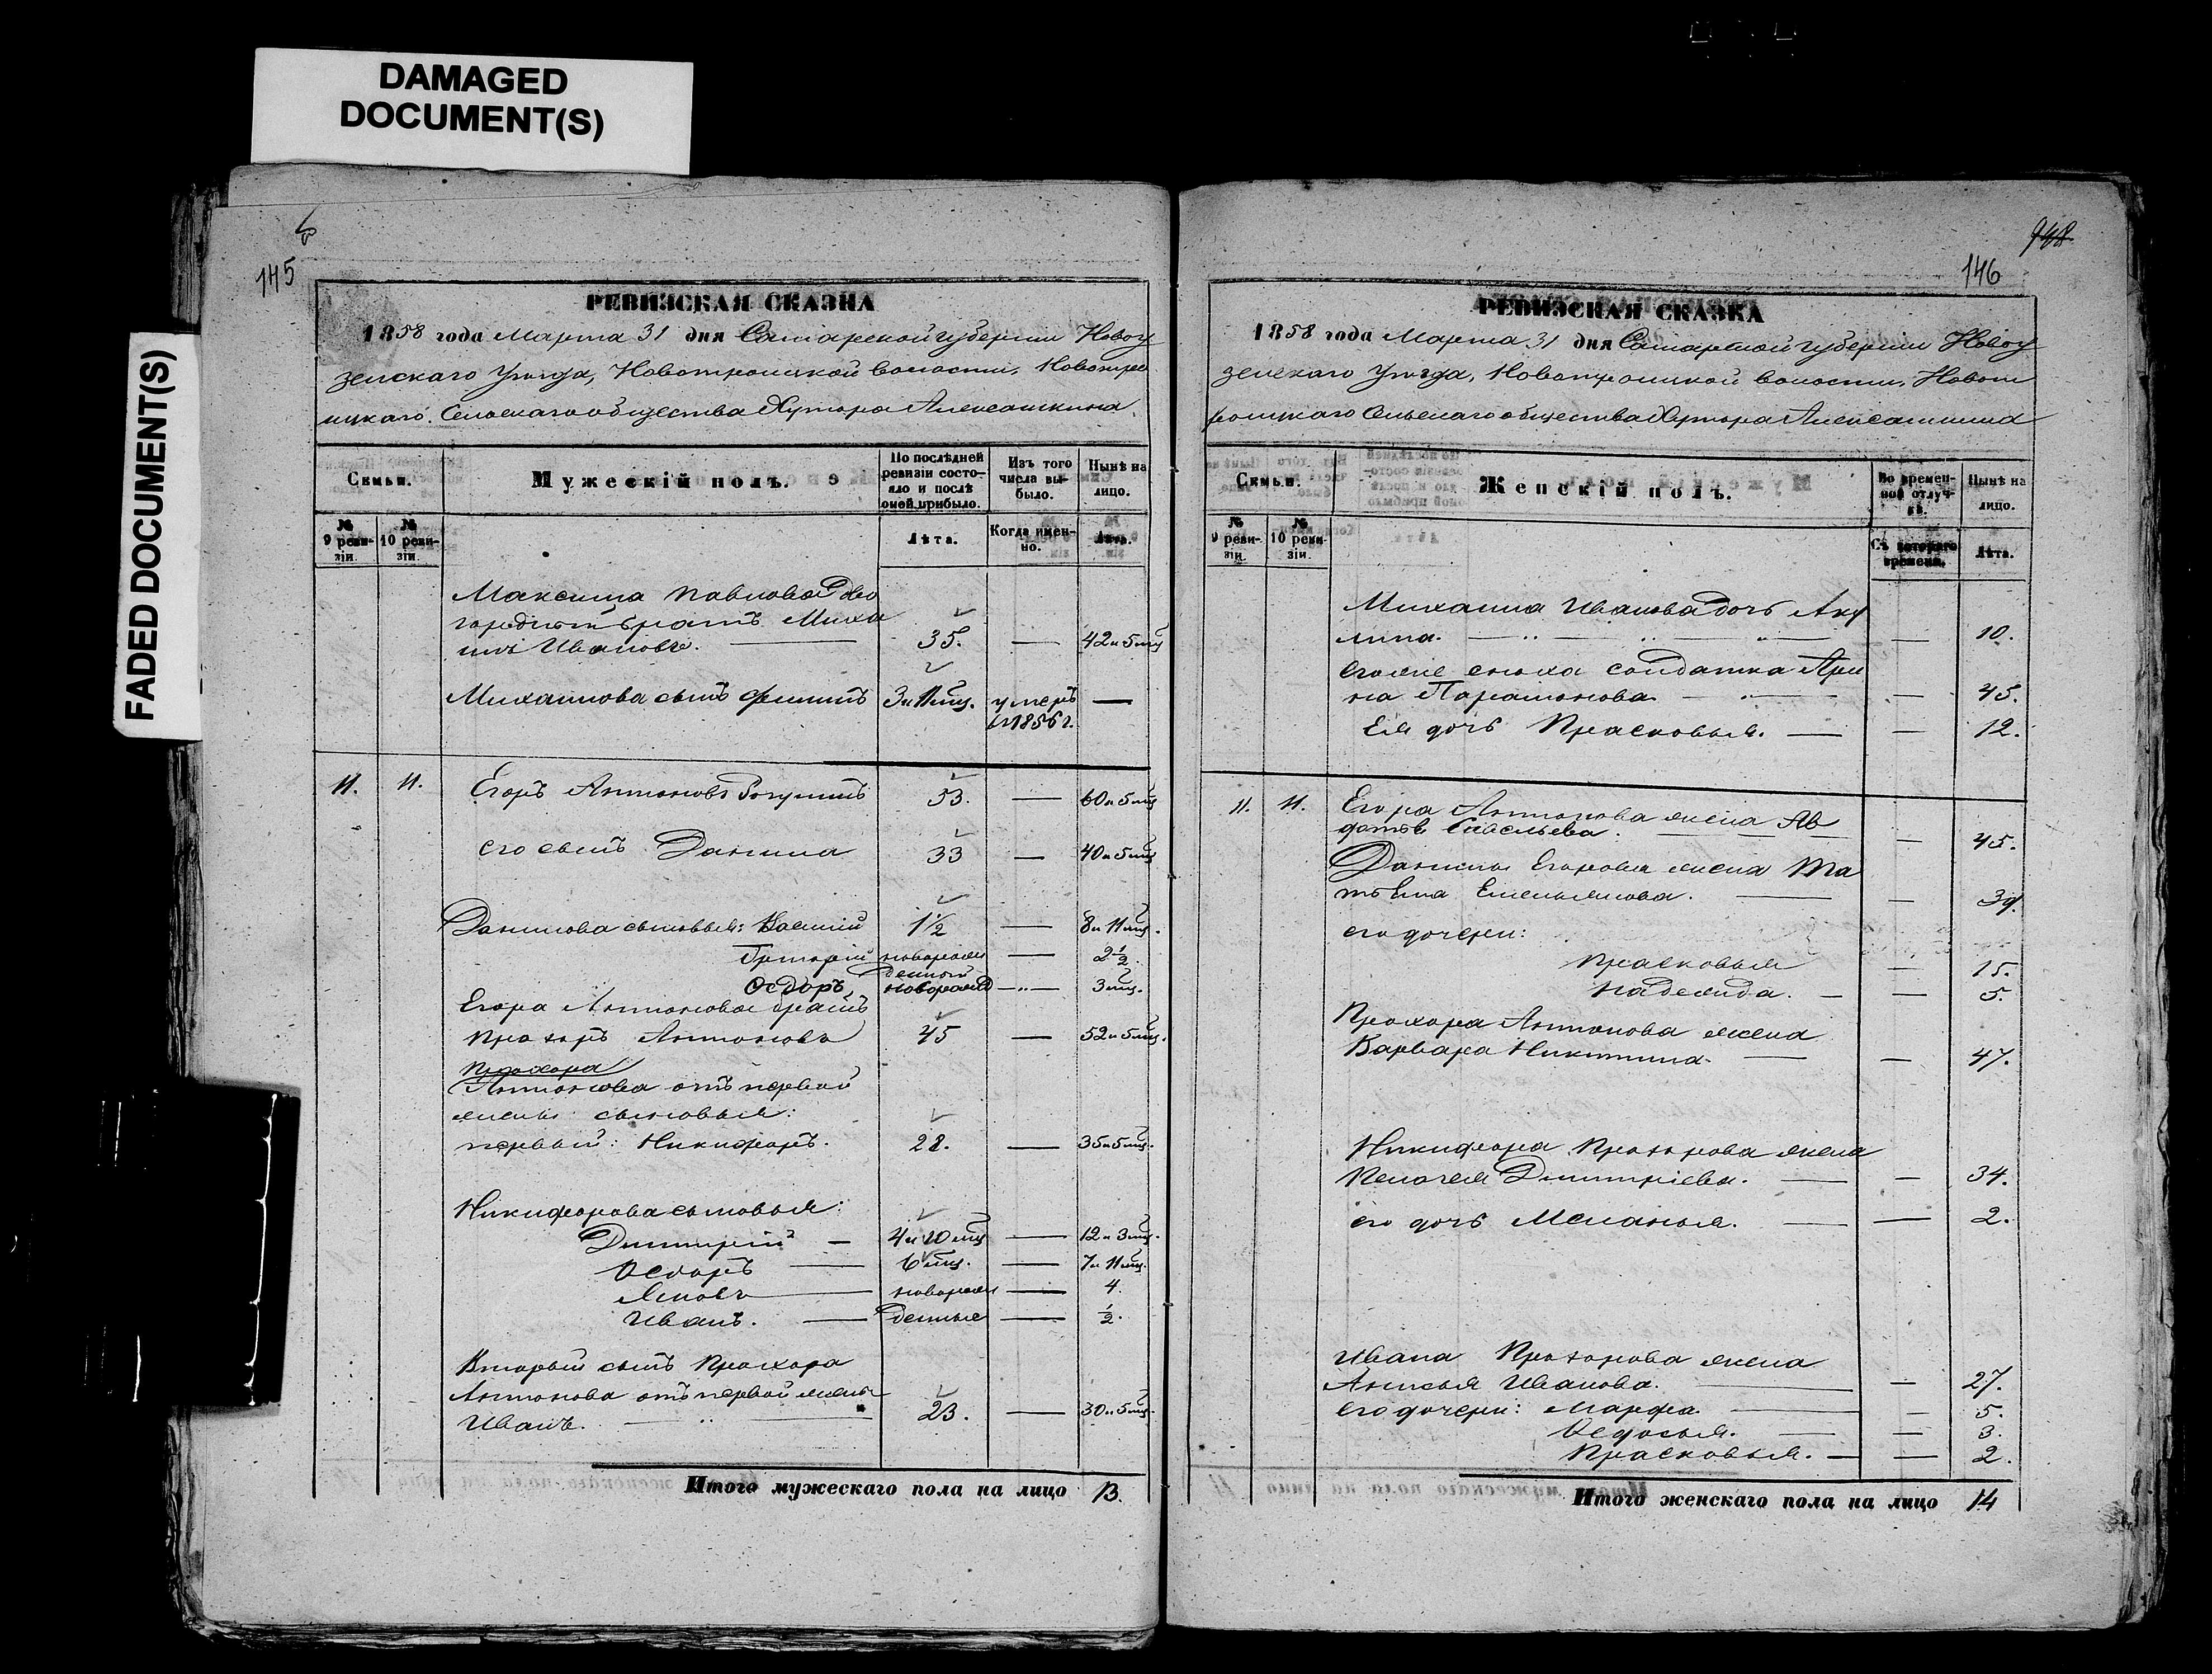 DAMAGED
DOCUMENT(S)
FADED DOCUMENT(S)
145
РЕВИЗСКАЯ СКАЗКА
1858 года Марта 31 дня Самарской губерніи Новоу
зенскаго Уѣзда, Новотроицкой волости, Новотро
ицкаго Сельскаго общества Хутора Алексашкина
Семьи.
Мужескій полъ.
По послѣдней ревизіи состояло и послѣ оной прибыло.
Изъ того числа выбыло.
Нынѣ на лицо.
№ 9 ревизіи.
№ 10 ревизіи.
Лѣта.
Когда именно.
Лѣта.
Максима Павлова дво
городный братъ Миха
илъ Ивановъ. 35. — 42 и 5 мц
Михаилова сынъ Филипъ 3 и 11 мц. умеръ —
в 1856 г.
11. 11. Егоръ Антоновъ 53. — 60 и 5 мц
его сынъ Данила 33 — 40 и 5 мц
Данилова сыновья: Василій 1½ — 8 и 11 мц.
Григорій новорож — 2½.
денный
Ѳедоръ новорожд — 3 мц.
Егора Антонова братъ
Прохоръ Антоновъ 45 — 52 и 5 мц.
Прохора
Антонова отъ первой
жены сыновья:
первый: Никифоръ. 28. — 35 и 5 мц.
Никифорова сыновья:
Дмитрій — 4 и 10 мц — 12 и 3 мц.
Ѳедоръ — 6 мц. — 7 и 11 мц.
Яковъ — новорож — 4.
Иванъ. — денные — ½.
Вторый сынъ Прохора
Антонова отъ первой жены
Иванъ. — 23. — 30 и 5 мц.
Итого мужескаго пола на лицо 13.
948
146
РЕВИЗСКАЯ СКАЗКА
1858 года Марта 31 дня Самарской губерніи Новоу
зенскаго Уѣзда, Новотроицкой волости, Новот
роицкаго Сельскаго общества Хутора Алексашкина
Семьи.
Женскій полъ.
Во временной отлучкѣ.
Нынѣ на лицо.
№ 9 ревизіи.
№ 10 ревизіи.
Съ котораго времени.
Лѣта.
Михаила Иванова дочь Аку
лина. — — 10.
его же сноха солдатка Ари
на Парамонова — — 45.
Ея дочь Прасковья. — — 12.
11. 11. Егора Антонова жена Ав
дотья Савельева. — — 45.
Данилы Егорова жена Та
тьяна Емельянова. — — 39.
его дочери:
Прасковья — 15.
Надежда. — — 5.
Прохора Антонова жена
Варвара Никитина. — — 47.
Никифора Прохорова жена
Пелагея Дмитріева. — — 34.
его дочь Меланья. — — 2.
Ивана Прохорова жена
Анисья Иванова. — — 27.
его дочери: Марфа. — — 5.
Ѳедосья. — — 3.
Прасковья. — — 2.
Итого женскаго пола на лицо 14